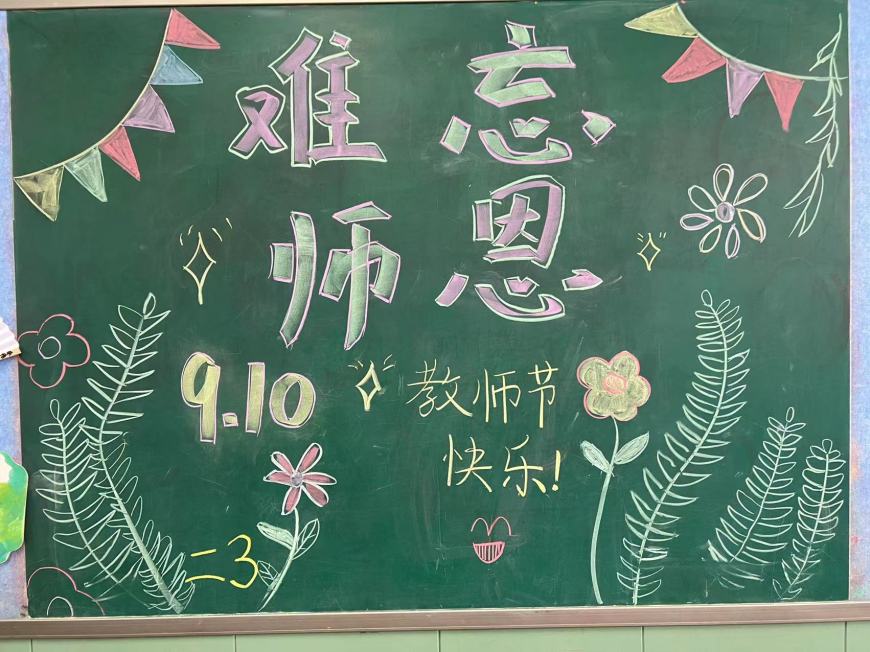 难忘
师恩
9.10
教师节
快乐!
二3